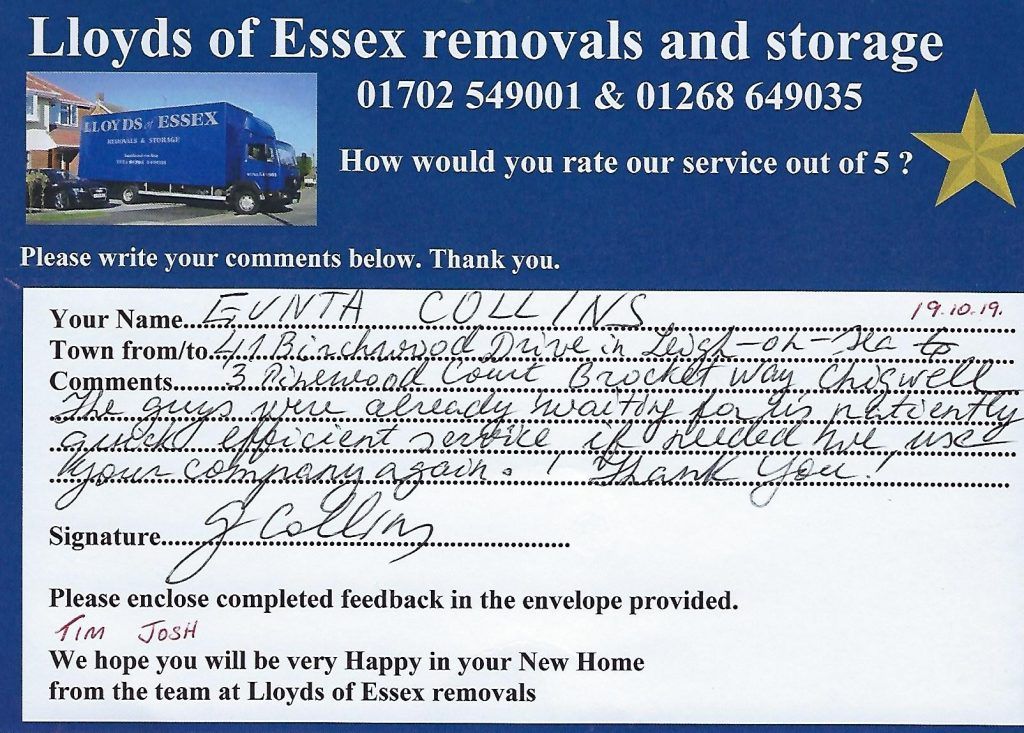 Lloyds of Essex removals and storage
01702 549001 & 01268 649035
LLOYDS of ESSEX
REMOVALS & STORAGE
How would you rate our service out of 5 ?
Please write your comments below. Thank you.
19.10.19.
Your Name GUNTA COLLINS
Town from/to 41 Birchwood Drive in Leigh-on-Sea to
Comments 3 Pinewood Court Brocket Way Chigwell
The guys were already waiting for us patiently
quick efficient service if needed we use
your company again. ! Thank You!
Signature G Collins
Please enclose completed feedback in the envelope provided.
TIM JOSH
We hope you will be very Happy in your New Home
from the team at Lloyds of Essex removals